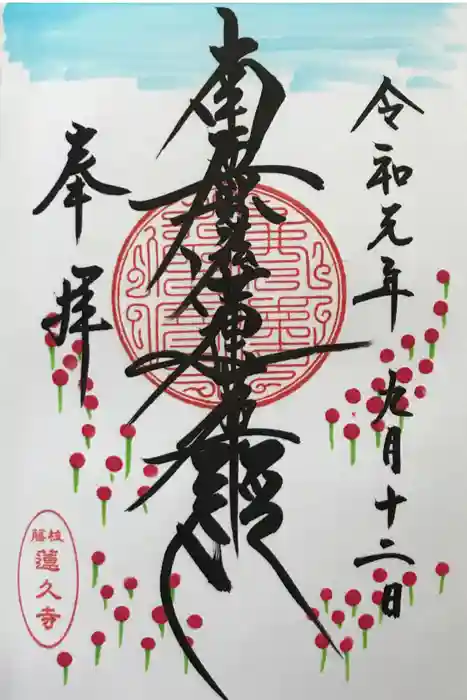 令和元年 九月十二日
南無妙法蓮華経
奉拝
藤枝
蓮久寺